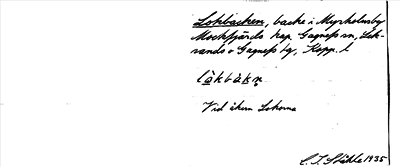 Lokbacken, backe i Myrholmsby
Mockfjärds kap. Gagnefs sn, Lek-
sands o Gagnefs tg, Kopp. l
lòkbàkn̥
Vid åkern Lokorna
C. I. Ståhle 1935